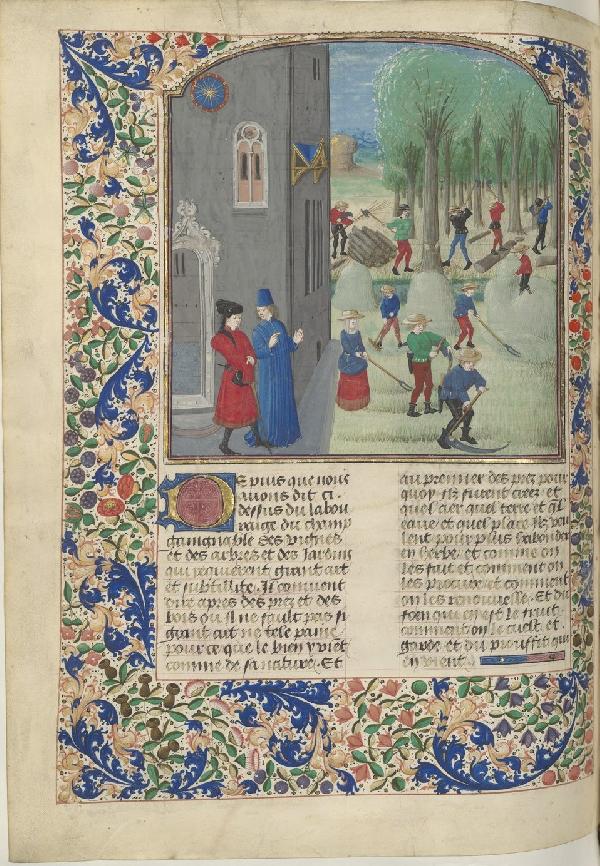 Depuis que nous
auons dit cy
dessus du labou
raige du champ
gaingnable des vignes
et des arbres et des Jardins
qui requierent grant art
et subtillite. Il conuient
dire apres des prez et des
bois ou il ne fault pas si
grant art ne tele paine
pour ce que le bien y vient
comme de sa nature. Et
au premier des prez pour
quoy ilz furent creez et
quel aer quel terre et quel
eaue et quel place ilz veu
lent pour plus habonder
en herbe. et comme on
les fait et comment on
les procure et comment
on les renouuelle. Et du
foen qui en est le fruit
comment on le cueilt et
garde et du prouffit qui
en vient.